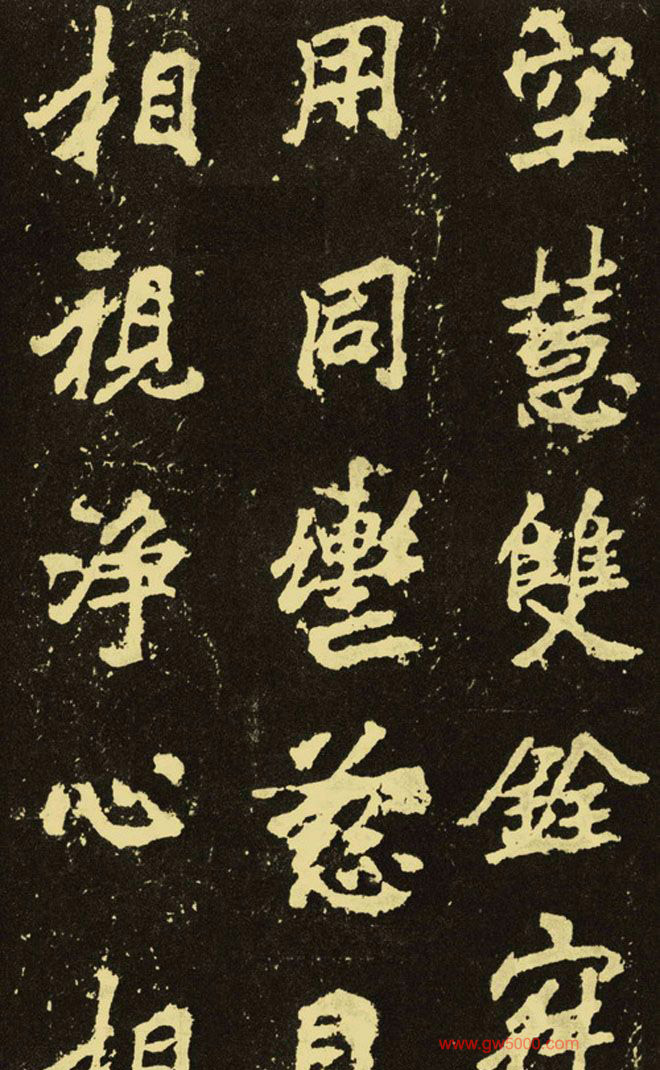 空慧雙銓
用同轡慈目
相視净心相
www.gw5000.com